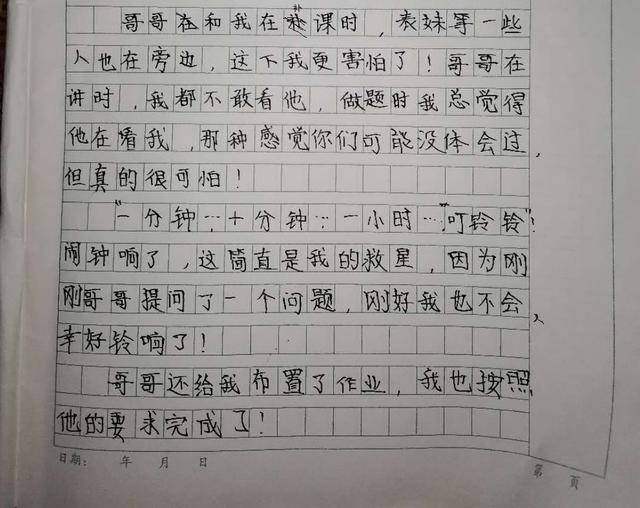 哥哥在和我在补课时，表妹等一些
人也在旁边，这下我更害怕了！哥哥在
讲时，我都不敢看他，做题时我总觉得
他在看我，那种感觉你们可能没体会过，
但真的很可怕！
"一分钟…十分钟…一小时…"叮铃铃"！
闹钟响了，这简直是我的救星，因为刚
刚哥哥提问了一个问题，刚好我也不会，
幸好铃响了！
哥哥还给我布置了作业，我也按照
他的要求完成了！
日期： 年 月 日
第 页